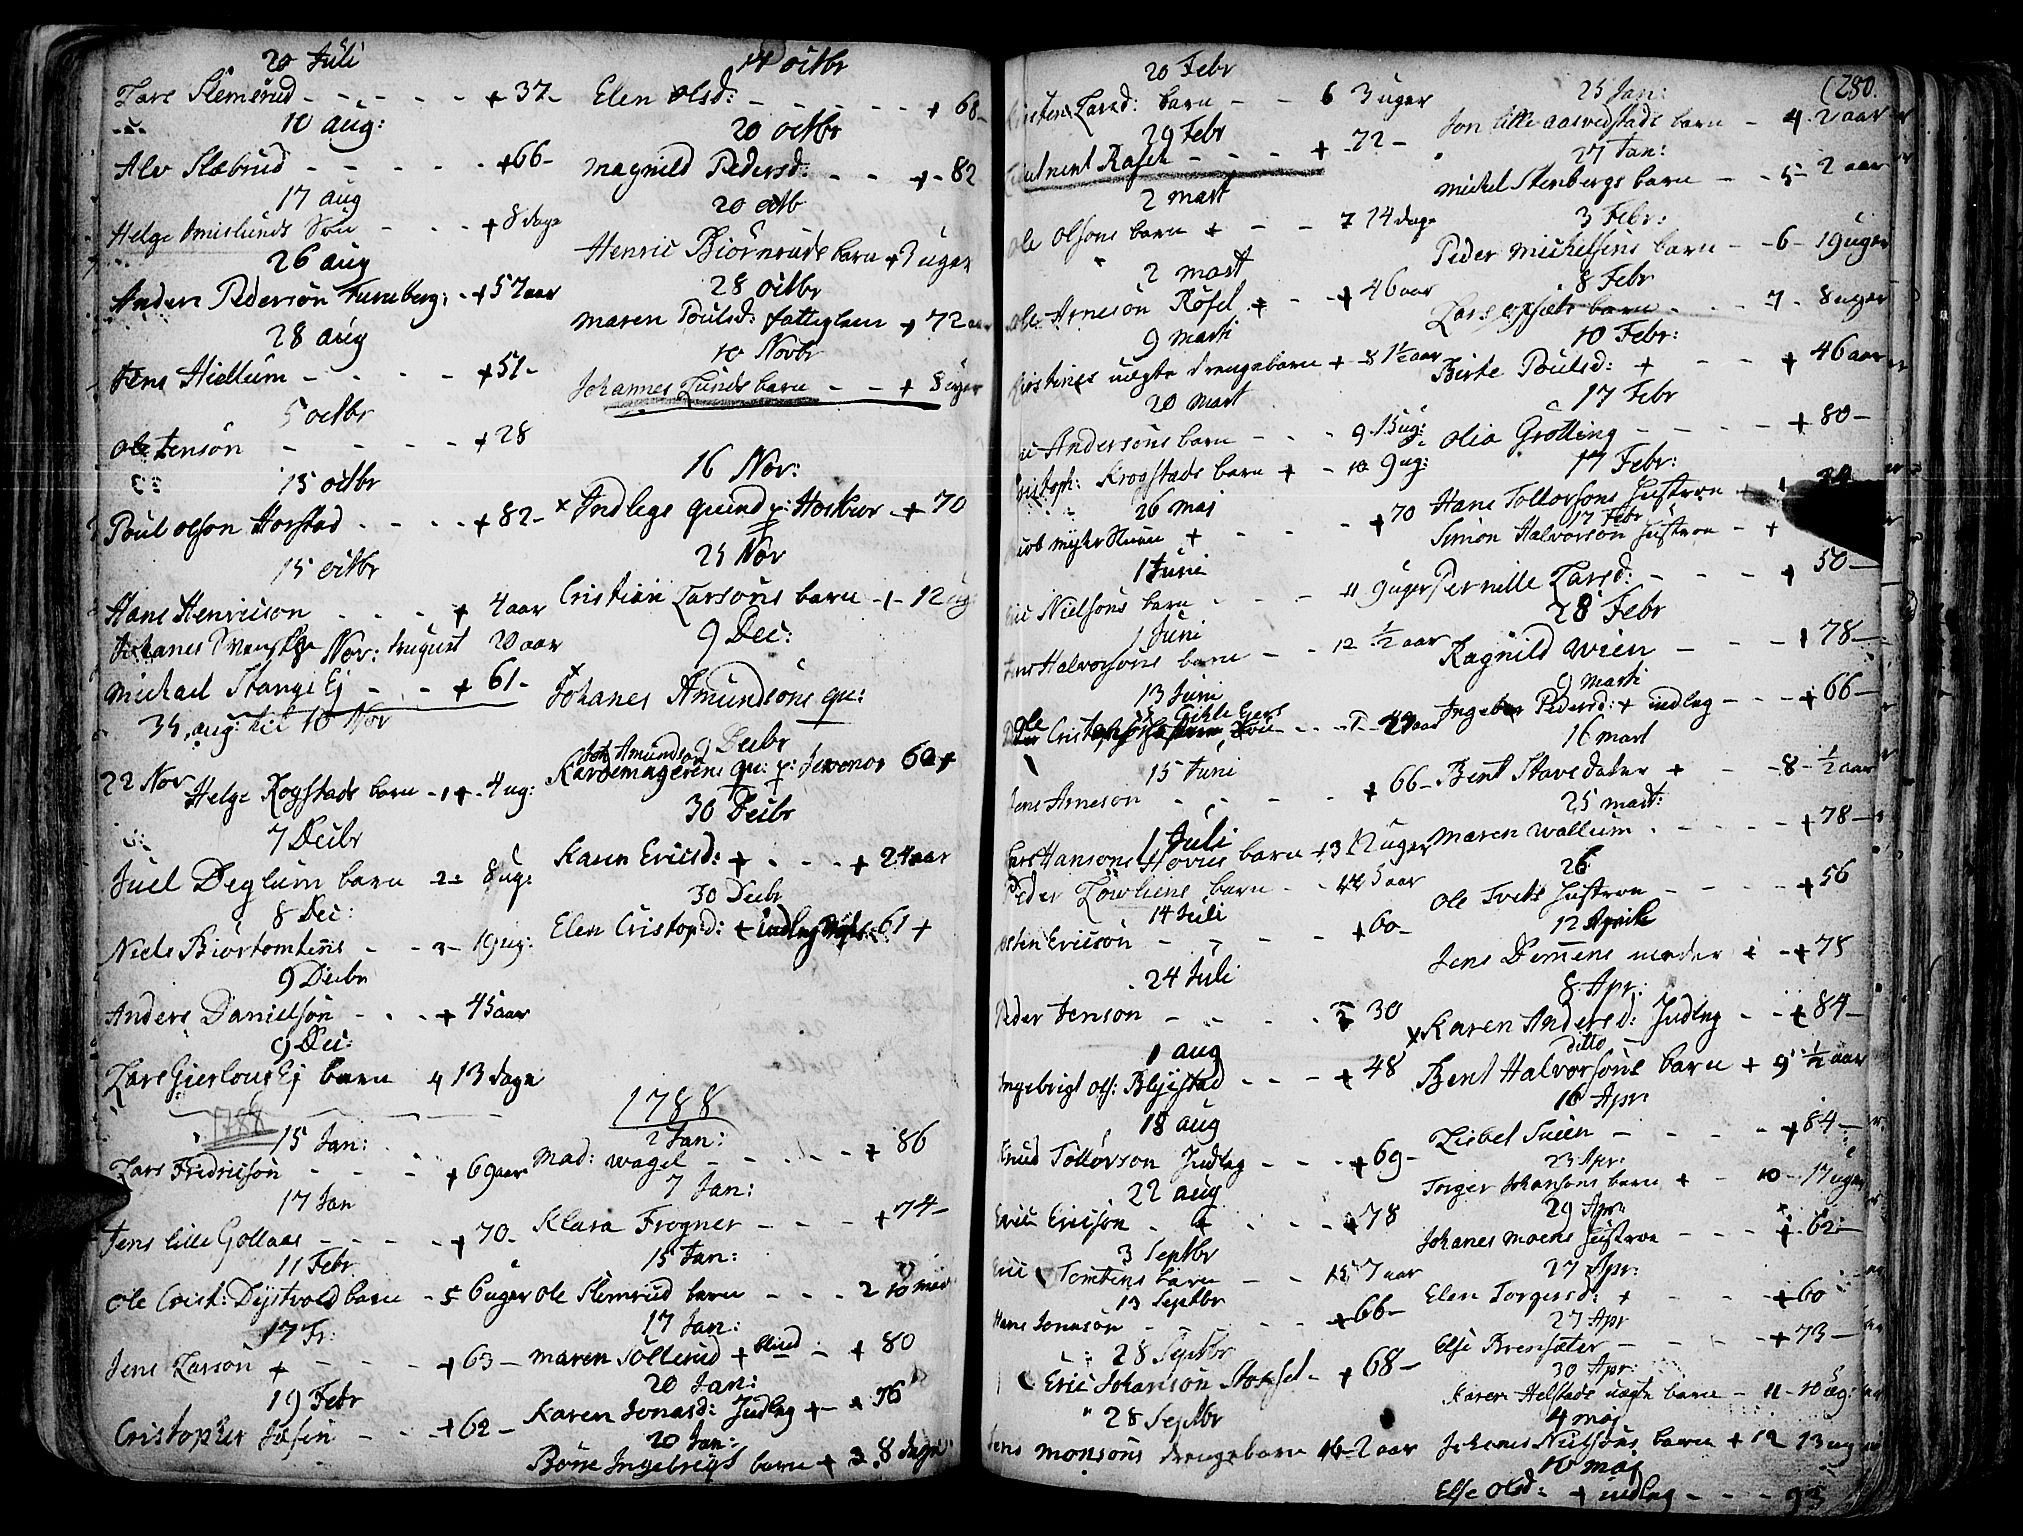 20 Juli
Lars Slemsrud - - - - - + 37 -
10 aug:
Alv Slæbrud - - - - - + 66 -
17 aug
Helge Søn - - - + 8 dage
26 aug
Anders Pedersøn Furuberg: - + 57 aar
28 aug
Jens Hiellum - - - - + 51 -
5 octbr
Ole Jensøn - - - - + 28
15 octbr
Poul Olson Horstad - - - - + 82 -
15 octbr
Hans Henricson - - - - + 4 aar
Johanes Nov: August 20 aar
Michael Stange Ej - - - + 61 -
aug: til 10 Nov
22 Nov Helge Rogstads barn - 1 + - 4 ug:
7 Decbr
Juel Deglum barn 2 = 8 ug:
8 Dec:
Niels Biørtomtens - - 3 - 19 ug:
9 Decbr
Anders Danielsøn - - - + 45 aar
9 Dec:
Lars Ej barn 4 13 dage
1788
15 Jan:
Lars Fredricsøn - - - - + 69 aar
17 Jan
Jens lille Gollaas - - - - + 70 -
11 Febr
Ole Crist: barn - 5 6 uger
17 Fr:
Jens Larson + - - - - + 63 -
19 Febr
Cristopher - - - + 62 -
14 octbr
Elen Olsd: - - - - - - + 68 -
20 octbr
Magnild Pedersd: - - + - 82
20 octb
Henric Biørnruds barn + 3 uger
28 octbr
Maren Poulsd: + 72 aar
10 Novbr
Johannes Lunds barn - - + 8 uger
16 Nov:
x Indlegs + 70
25 Nov
Cristian Larsøns barn - 1 - 12 ug
9 Dec:
x Johanes Amundsøns qu:
9 Decbr
Joh Amundson
qu: 60 +
30 Decbr
Karen Ericsd: + - - - + 24 aar
30 Decbr
Elen Cristopsd: + 61 +
1788
2 Jan:
Mad: Wagel - - - - - + 86
7 Jan:
Klara Frogner - - - - + 74 -
15 Jan:
Ole Slemsrud barn - - - 2 10
17 Jan:
Maren Søllerud + blind - + 80
20 Jan:
Karen Jonasd: Indlag + - + 76
20 Jan:
Børre Ingebrigt barn + 3. 8 dage
20 Febr
Larsd: barn - - 6 3 uger
29 Febr
Leutnent Rasch - - - - + - 72 -
2 mart
Ole Olsons barn + - - 7 14 dage
2 mart
Ole Arneson Røsel + - - + 46 aar
9 marti
Kirstines uægte drengebarn + - 8 1 ½ aar
20 mart
Andersøns barn - - - 9 15 ug:
Cristoph: Krogstads barn + - 10 9 ug:
26 maj
+ - - - + 70
1 Juni
Eric Nielsøns barn - - - - 11 9 uger
1 Juni
Halvorsøns barn - - 12 ½ aar
13 Juni
Ole
15 Juni
Jens Arneson - - - - + 66 -
1 Juli
Lars Hansøns barn + 13 12 uger
Peder barn - - 14 5 aar
14 Juli
Osten Ericson - - - - + 60 -
24 Juli
Peder Jenson - - - - 30
1 aug
Ingebrigt Ols: Blystad - - - + 48
18 aug
Knud Tollorson Indlag - - - + 69 -
22 aug
Eric Ericson - + - - + 78
3 Septbr
Eric Tomtens barn - - 15 7 aar
13 Septbr
Hans Jonason - - - - - + 66 -
28 Septbr
Eric Johanson - + 68 -
28 Septbr
Jens Monsøns drengebarn 16 - 2 aar
(280.
25 Jan:
Jon lille aasvedstads barn - 4 - 2 aar
27 Jan:
Michel Stenbergs barn - - 5 - 2 aar
3 Febr:
Peder Michelsens barn - - 6 - 19 uger
8 Febr
Lars barn - - - 7 - 8 uger
10 Febr:
Birte Poulsd: + - - - + 46 aar
17 Febr
Olia Grøtting - - - - + 80 -
17 Febr:
Hans Tollorsøns Hustroe +
17 Febr
Simon Halvorsøn Hustroe - +
Pernille Larsd: - - - + 50 -
28 Febr
Ragnild Wien - - - + 78 -
9 marti
Ingebor Pedersd: + indlag - - - + 66 -
16 mart
Bent Stavs dater + - - 8 - ½ aar
25 mart:
Maren Wallum - - - - + 78 -
26
Ole Tvets Hustroe - - - - + 56
12 Aprill
Jens moder + - + 75
8 Apr:
x Karen Andersd: Indlag - - + 84 -
ditto
Bent Halvorsøns barn + 9 - ½ aar
16 Apr:
Lisbet Svien - - - - + 84 -
23 Apr:
Torger Johansøns barn + - 10 - 17 uger
29 Apr:
Johanes Moens Hustroe - - - + 62 -
27 Apr:
Elen Torgersd: + - - - + 60
27 Apr
Else Brensæter - - - - + 73 -
30 Apr:
Karen Helstads uægte barn - 11 - 10 ug:
4 maj
Johanes Nielsøns barn + 12 13 ug
10 maj
Else Olsd: + indlag - - - 93